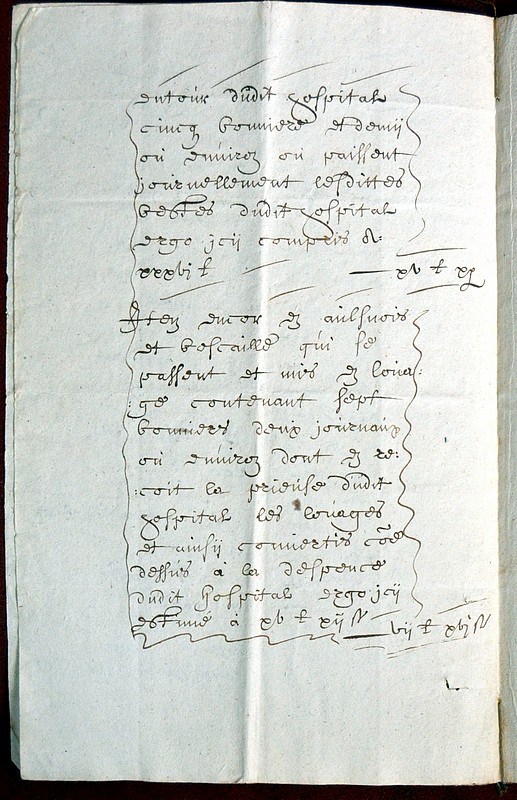 entour dudit hospital
cincq bonniers et demij
ou environ ou paissent
journellement lesdittes
bestes dudit hospital
ergo jcij compris &
xxxvj £ xv £ xx
Item encor en aulsnois
et boscaille qui se
passent et mis en loua:
:ge contenant sept
bonniers deux journaux
ou environ dont en re:
:coit la prieuse dudit
hospital les louages
et ainsij convertis cõe
dessus a la despence
dudit hospital ergo jcij
estimé a xv £ xij s vij £ xvj s